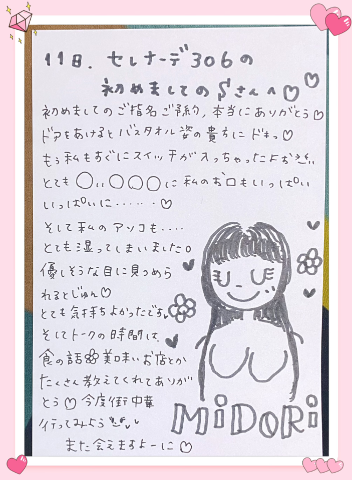 11日、セレナーデ306の
初めましてのSさんへ♡
初めましてのご指名ご予約、本当にありがとう♡
ドアをあけるとバスタオル姿の貴方にドキッ♡
もう私もすぐにスイッチが入っちゃった
とても〇い〇〇〇に私のお口もいっぱい
いっぱいに‥‥‥♡
そして私のアソコも‥‥
とても湿ってしまいました。
優しそうな目に見つめら
れるとじゅん♡
とても気持ちよかったです。
そしてトークの時間は、
食の話 美味いお店とか
たくさん教えてくれてありが
とう♡今度街中華
行ってみよう
また会えますよーに♡
MiDORi